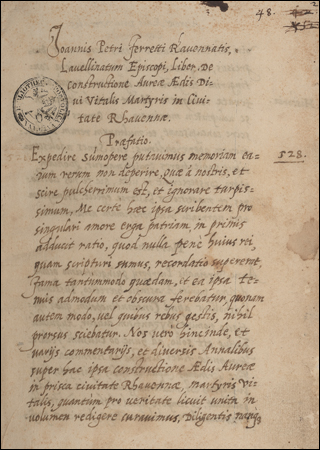 48.
Joannis Petri Ferretti Ravennatis,
Lavellinatum Episcopi, Liber, De
constructione Aureæ Ædis Di
ui Vitalis Martyris in Ciui
tate Rhavennæ.
Præfatio.
Expedire summopere putavimus memoriam ea
rum rerum non deperire, quæ à nobis, et
scire pulcherrimum est, et ignorare turpis
simum, Me certè hæc ipsa scribentem pro
singulari amore erga patriam, in primis
adducit ratio, quod nulla penè huius rei,
quam scripturi sumus, recordatio supererat,
fama tantummodo quædam, et ea ipsa te=
nuis admodum et obscura ferebatur, quonam
autem modo, vel quibus rebus gestis, nihil
prorsus sciebatur. Nos verò hincinde, et
varijs commentarijs, et diversis Annalibus
super hac ipsa constructione Ædis Aureæ
in prisca civitate Rhavennæ, martyris Vi=
talis, quantùm pro veritate licuit unita in
volumen redigere curavimus, Diligentis
528.